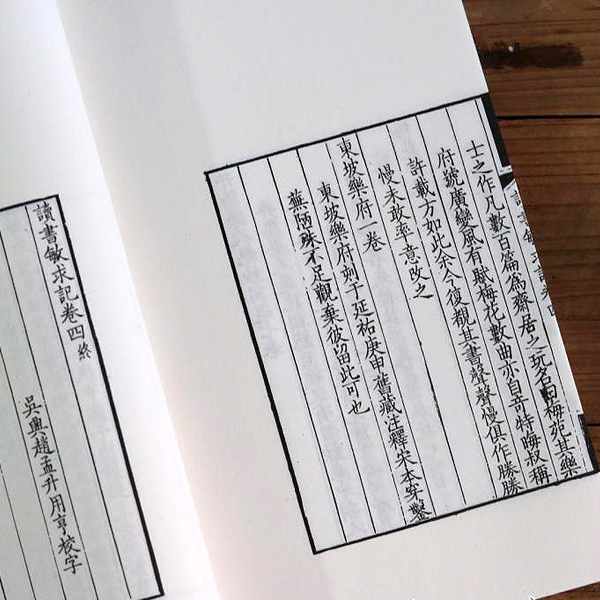 士之作凡數百篇為齋居之玩名曰梅苑其樂
府號廣變風有賦梅花數曲亦自奇特晦叔稱
許載方如此余今復觀其書聲聲慢俱作勝勝
慢未敢率意改之
東坡樂府一卷
東坡樂府刻于延祐庚申舊藏注釋宋本穿鑿
蕪陋殊不足觀棄彼留此可也
讀書敏求記卷四終
吳興趙孟升用亨校字